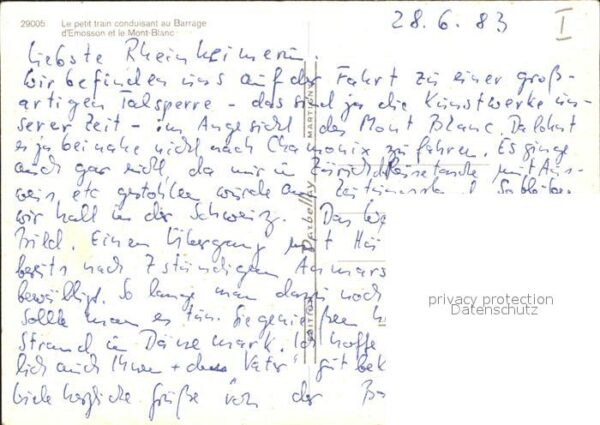 29005 Le petit train conduisant au Barrage
d'Emosson et le Mont-Blanc
28.6.83 I
Liebste Rheinheimerin
Wir befinden uns auf der Fahrt zu einer groß-
artigen Talsperre - das sind ja die Kunstwerke un-
serer Zeit - im Angesicht des Mont Blanc. Da lohnt
es ja beinahe nicht nach Chamonix zu fahren. Es ginge
auch gar nicht, da mir in Zürich Reisetasche mit Aus-
weis etc gestohlen wurde am
wir halt in der Schweiz. Das
Bild. Einen Übergang mit
bereits nach 7 stündigem Anmars
bewältigt. So lange man dazu noch
sollte man es tun. Sie genießen
Strand in Dänemark. Ich hoffe
lich auch Ihnen + dem "Vater" gut bek
viele herzliche Grüße von der
EDITION Darbellay MARTIGNY
privacy protection
Datenschutz